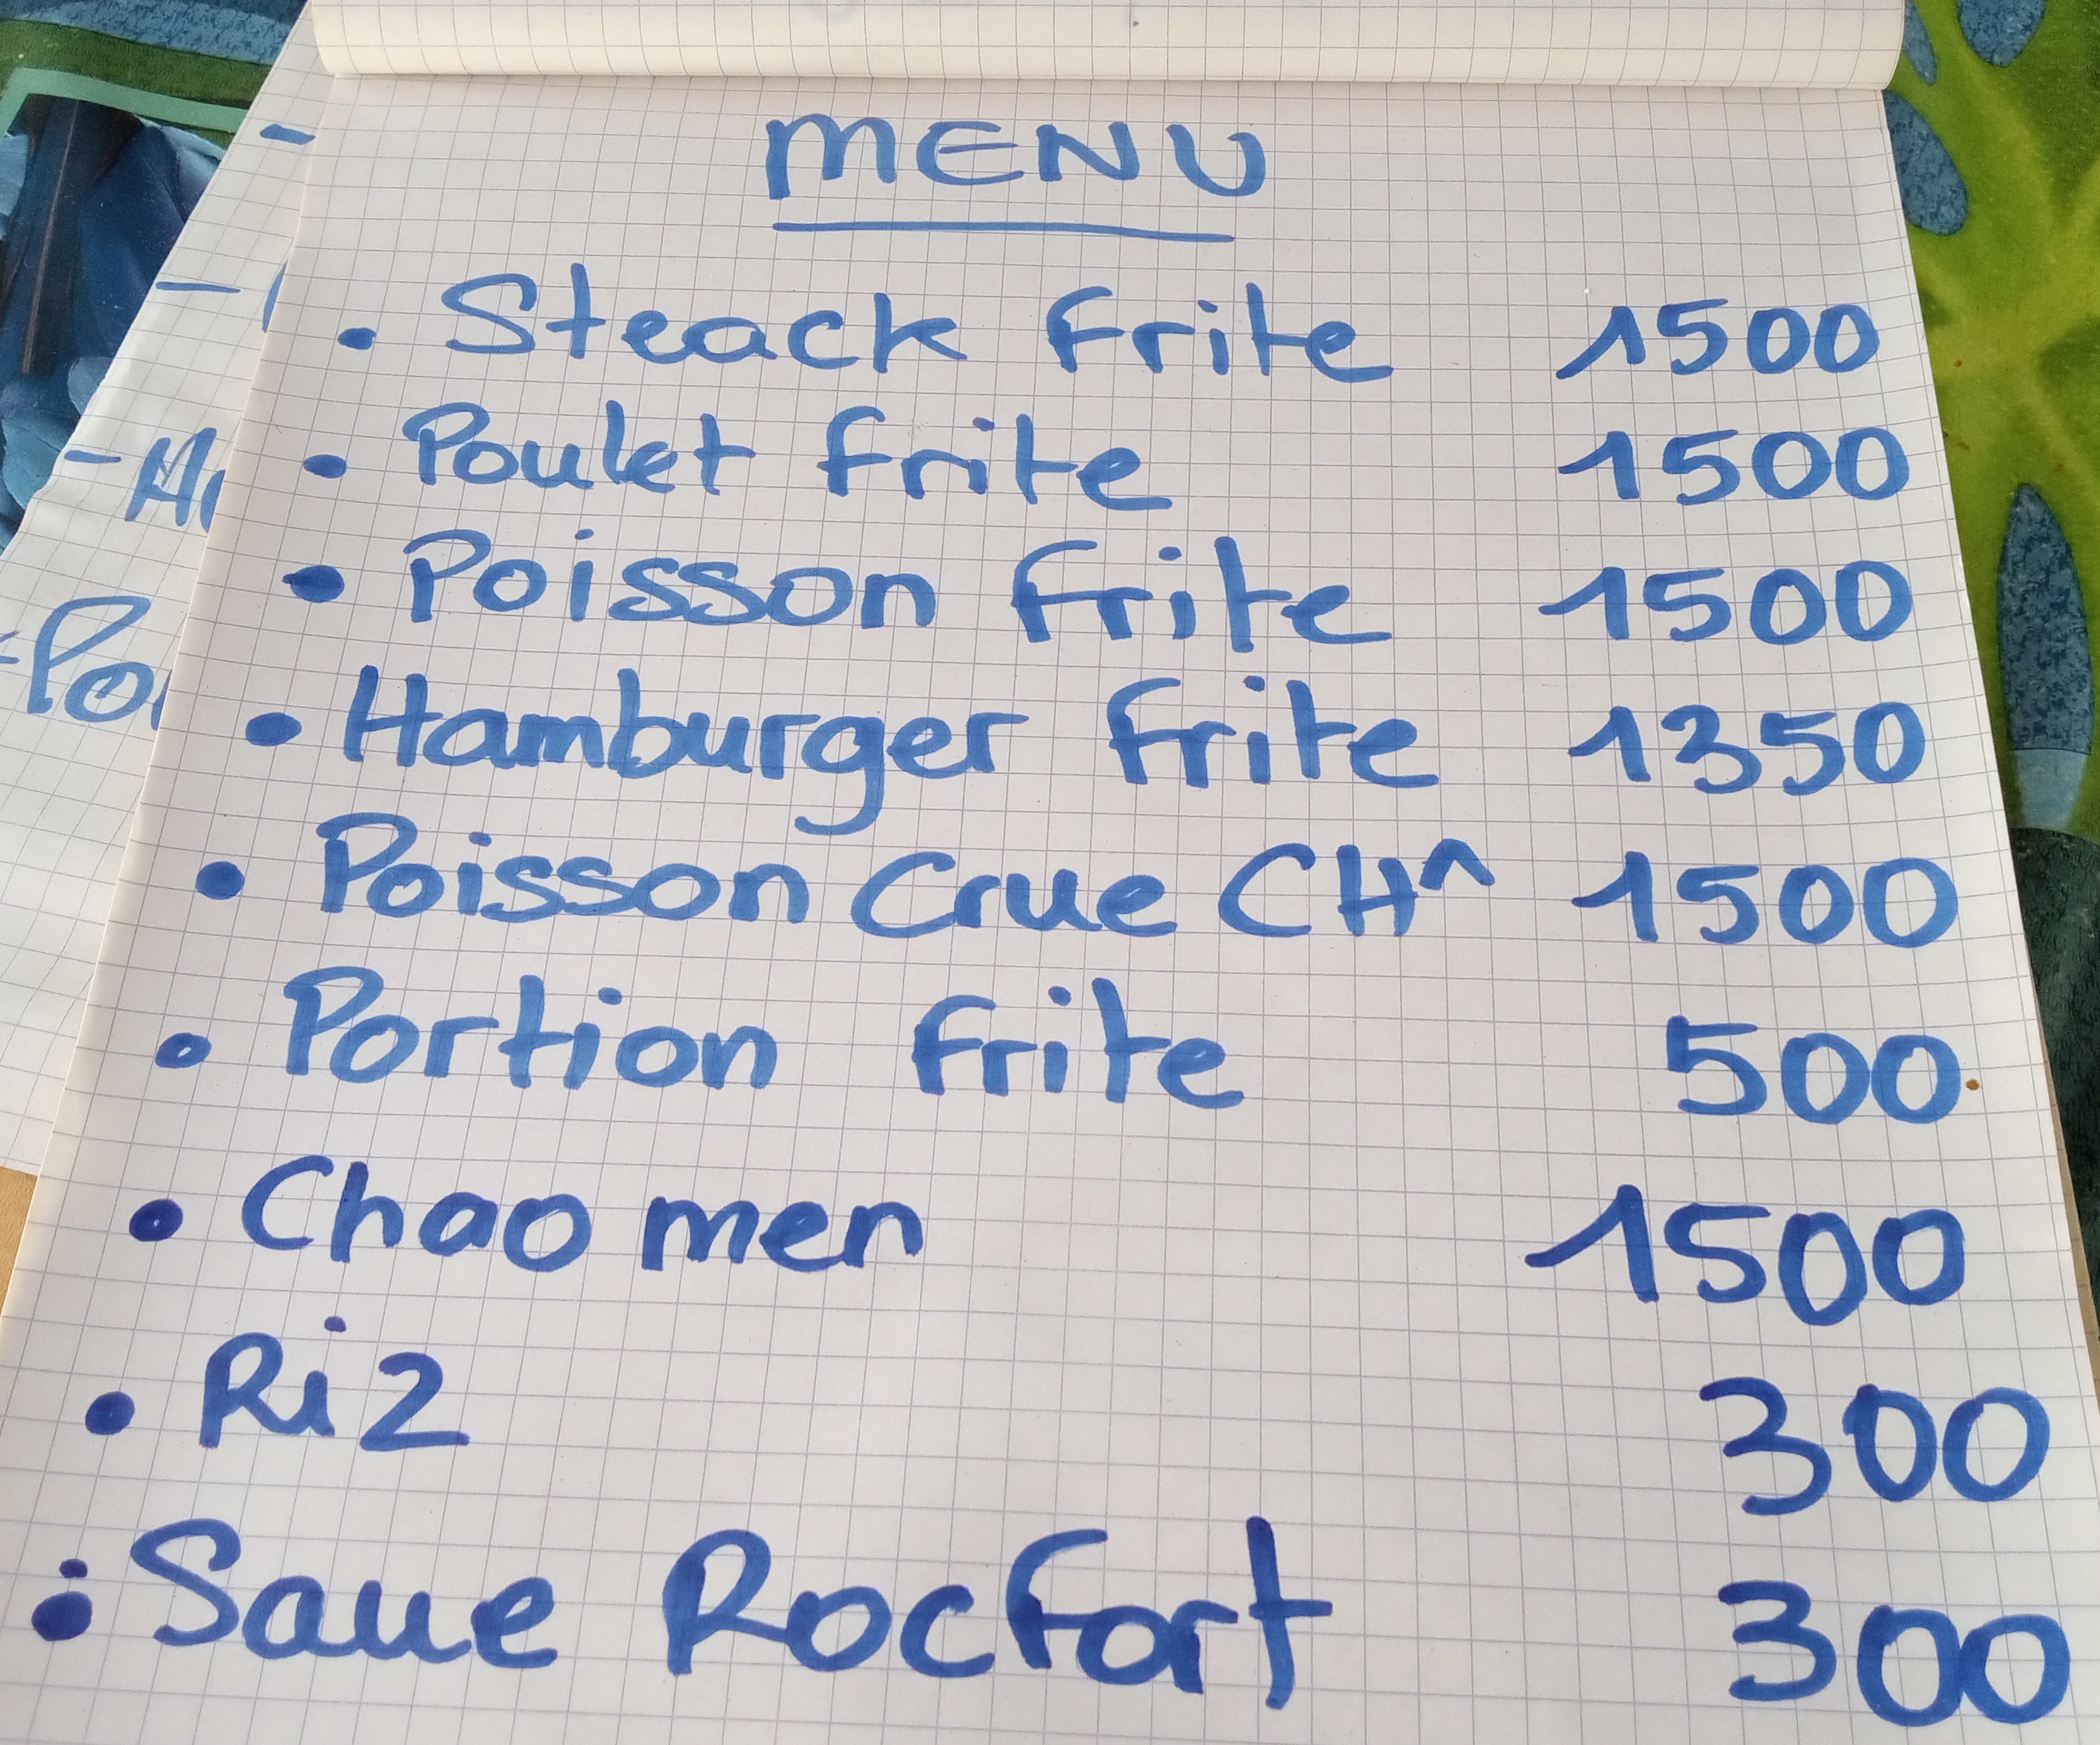 MENU
• Steack frite 1500
• Poulet frite 1500
• Poisson frite 1500
• Hamburger frite 1350
• Poisson Crue CH^ 1500
• Portion frite 500
• Chao men 1500
• Riz 300
• Saue Rocfort 300